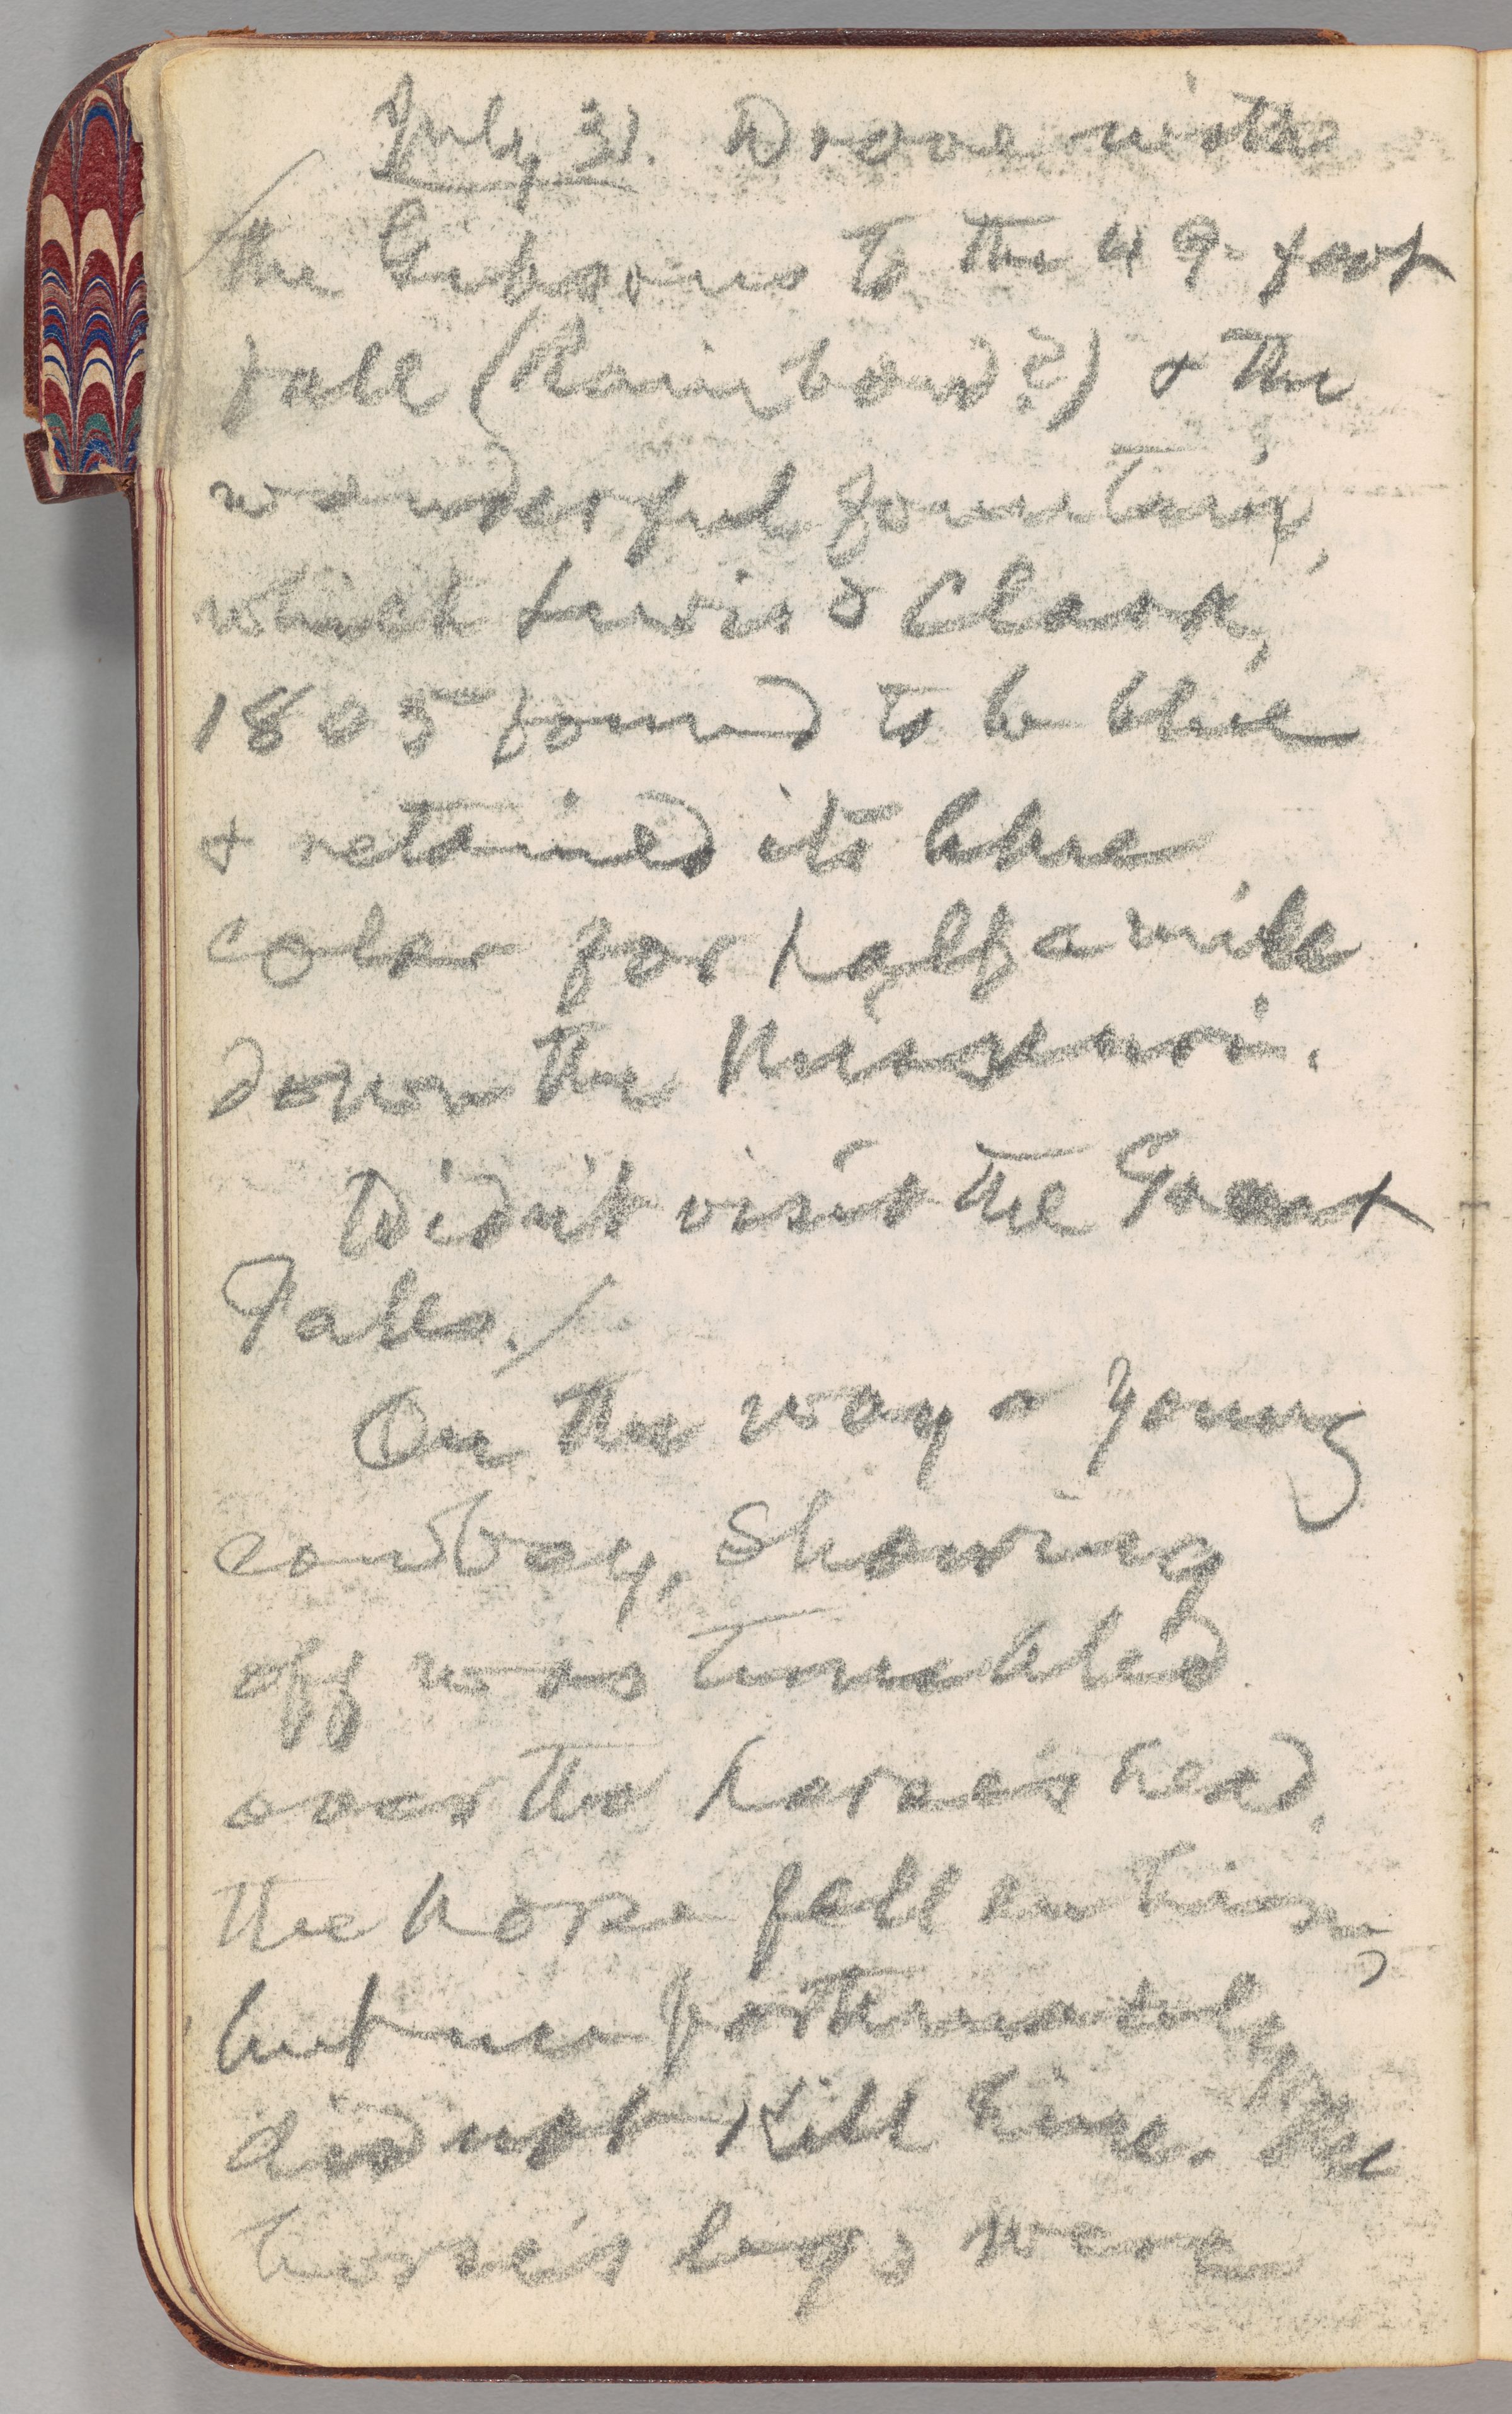 July 31. Drove with
the Gibsons to the 49-foot
fall (Rainbow?) & the
wonderful fountain,
which Lewis & Clark,
1805 found to be blue
& retained its blue
color for half a mile
down the Missouri.
Didn't visit the Great
Falls./
On the way a young
cowboy, showing
off was tumbled
over the horse's head,
the horse fell on him,
but unfortunately
did not kill him. The
horse's legs were